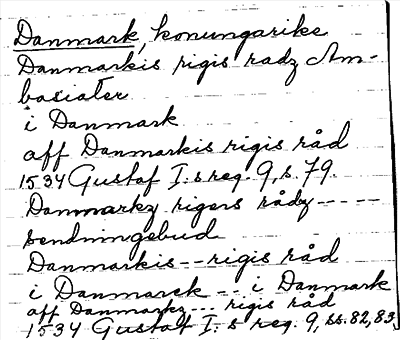 Danmark, konungarike
Danmarkis rigis radz Am-
basiater
i Danmark
aff Danmarkis rigis råd
1534 Gustaf I:s reg. 9, s. 79.
Danmarkz rigens rådz - - - - -
sendningebud
Danmarkis - - rigis råd
i Danmarck - - i Danmark
aff Danmarkz - - - rigis råd
1534 Gustaf I:s reg. 9, ss. 82, 83